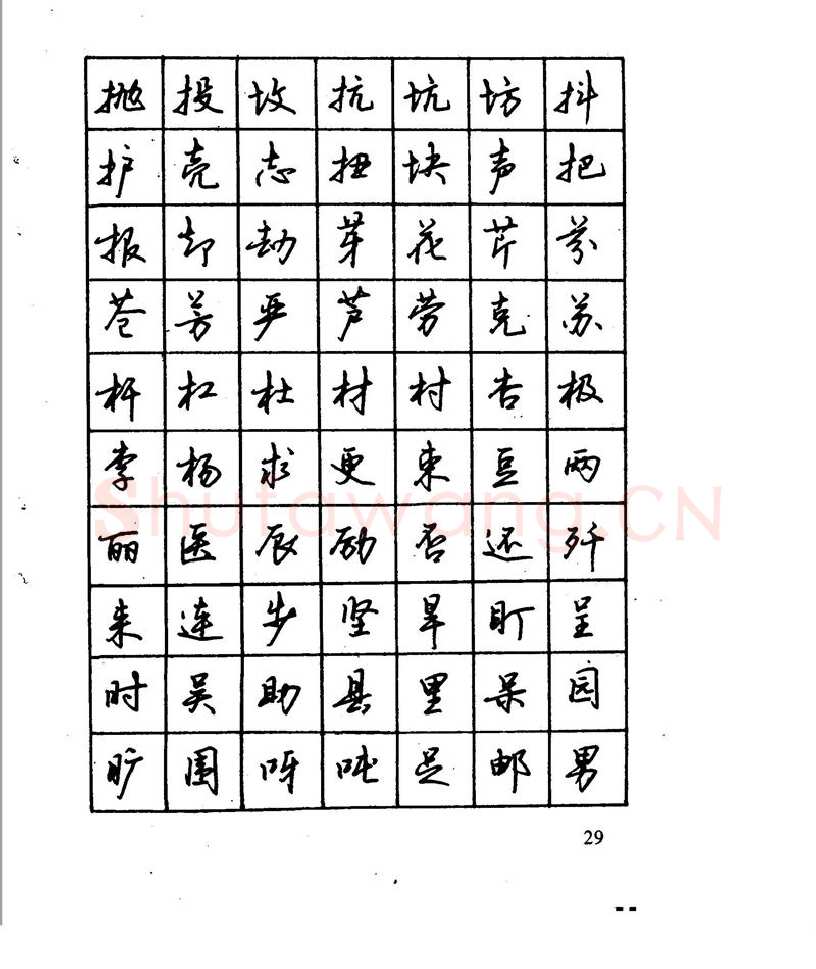 抛 投 坟 抗 坑 坊 抖
护 壳 志 扭 块 声 把
报 却 劫 芽 花 芹 芬
苍 芳 严 芦 劳 克 苏
杆 杠 杜 材 村 杏 极
李 杨 求 更 束 豆 两
丽 医 辰 励 否 还 歼
来 连 步 坚 旱 盯 呈
时 吴 助 县 里 呆 园
旷 围 呀 吨 足 邮 男
Shufawang.CN
29